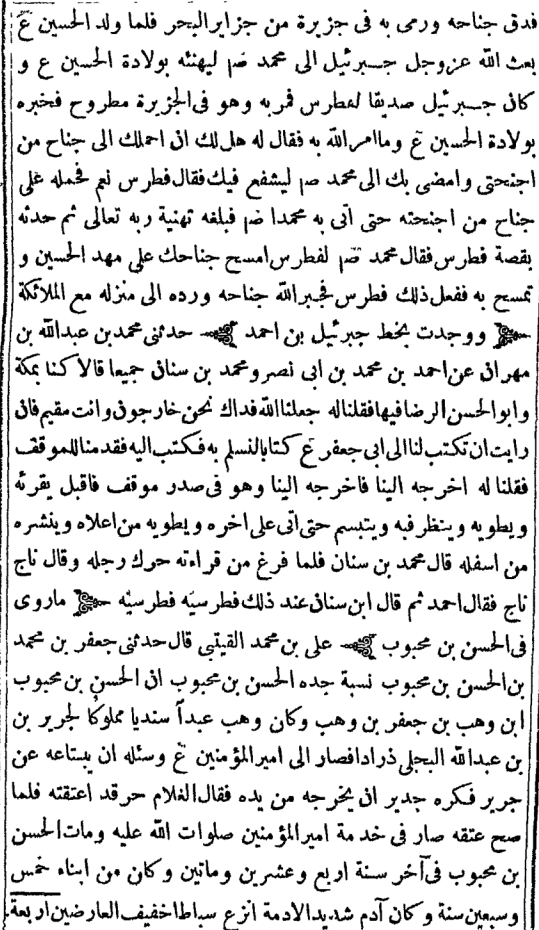 فدق جناحه ورمى به فى جزيرة من جزاير البحر فلما ولد الحسين ع
بعث الله عزوجل جبرئيل الى محمد صم ليهنئه بولادة الحسين ع و
كان جبرئيل صديقا لفطرس فمر به وهو فى الجزيرة مطروح فخبره
بولادة الحسين ع وماامر الله به فقال له هل لك ان احملك الى جناح من
اجنحتى وامضى بك الى محمد صم ليشفع فيك فقال فطرس نعم فحمله على
جناح من اجنحته حتى اتى به محمدا صم فبلغه تهنية ربه تعالى ثم حدثه
بقصة فطرس فقال محمد صم لفطرس امسح جناحك على مهد الحسين و
تمسح به ففعل ذلك فطرس فجبر الله جناحه ورده الى منزله مع الملائكة
ووجدت بخط جبرئيل بن احمد حدثنى محمد بن عبدالله بن
مهران عن احمد بن محمد بن ابى نصر ومحمد بن سنان جميعا قالا كنا بمكة
وابوالحسن الرضا فيها فقلنا له جعلنا الله فداك نحن خارجون وانت مقيم فان
رايت ان تكتب لنا الى ابى جعفر ع كتابا لنسلم به فكتب اليه فقدمنا للموقف
فقلنا له اخرجه الينا فاخرجه الينا وهو فى صدر موقف فاقبل يقرئه
ويطويه وينظر فيه ويتبسم حتى اتى على اخره ويطويه من اعلاه وينشره
من اسفله قال محمد بن سنان فلما فرغ من قراءته حرك رجله وقال ناج
ناج فقال احمد ثم قال ابن سنان عند ذلك فطرسيّه فطرسيّه ماروى
فى الحسن بن محبوب على بن محمد القيتبى قال حدثنى جعفر بن محمد
بن الحسن بن محبوب نسبة جده الحسن بن محبوب ان الحسن بن محبوب
ابن وهب بن جعفر بن وهب وكان وهب عبداً سنديا مملوكا لجرير بن
بن عبدالله البجلى ذرادا فصار الى امير المؤمنين ع وسئله ان يبتاعه عن
جرير فكره جدير ان يخرجه من يده فقال الغلام حر قد اعتقته فلما
صح عتقه صار فى خدمة امير المؤمنين صلوات الله عليه ومات الحسن
بن محبوب فى آخر سنة اربع وعشرين وماتين وكان من ابناء خمس
وسبعين سنة وكان آدم شديد الادمة انزع سباطا خفيف العارضين اربعة